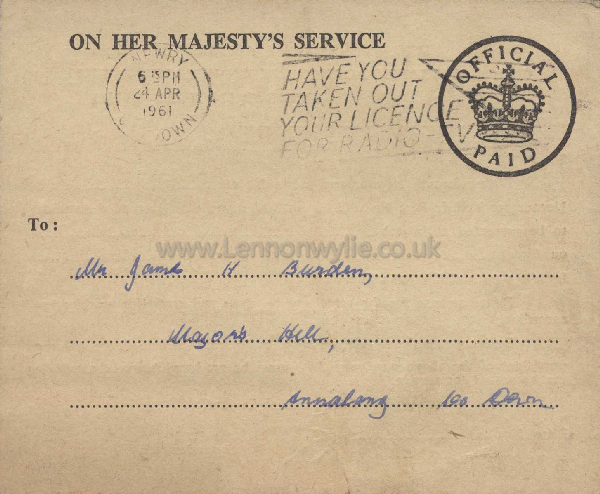 ON HER MAJESTY'S SERVICE
NEWRY
6 15 PM
24 APR
1961
CO. DOWN
HAVE YOU
TAKEN OUT
YOUR LICENCE
FOR RADIO-TV
OFFICIAL
PAID
To:
www.Lennonwylie.co.uk
Mr James H Burden,
Major's Hill,
Annalong Co Down